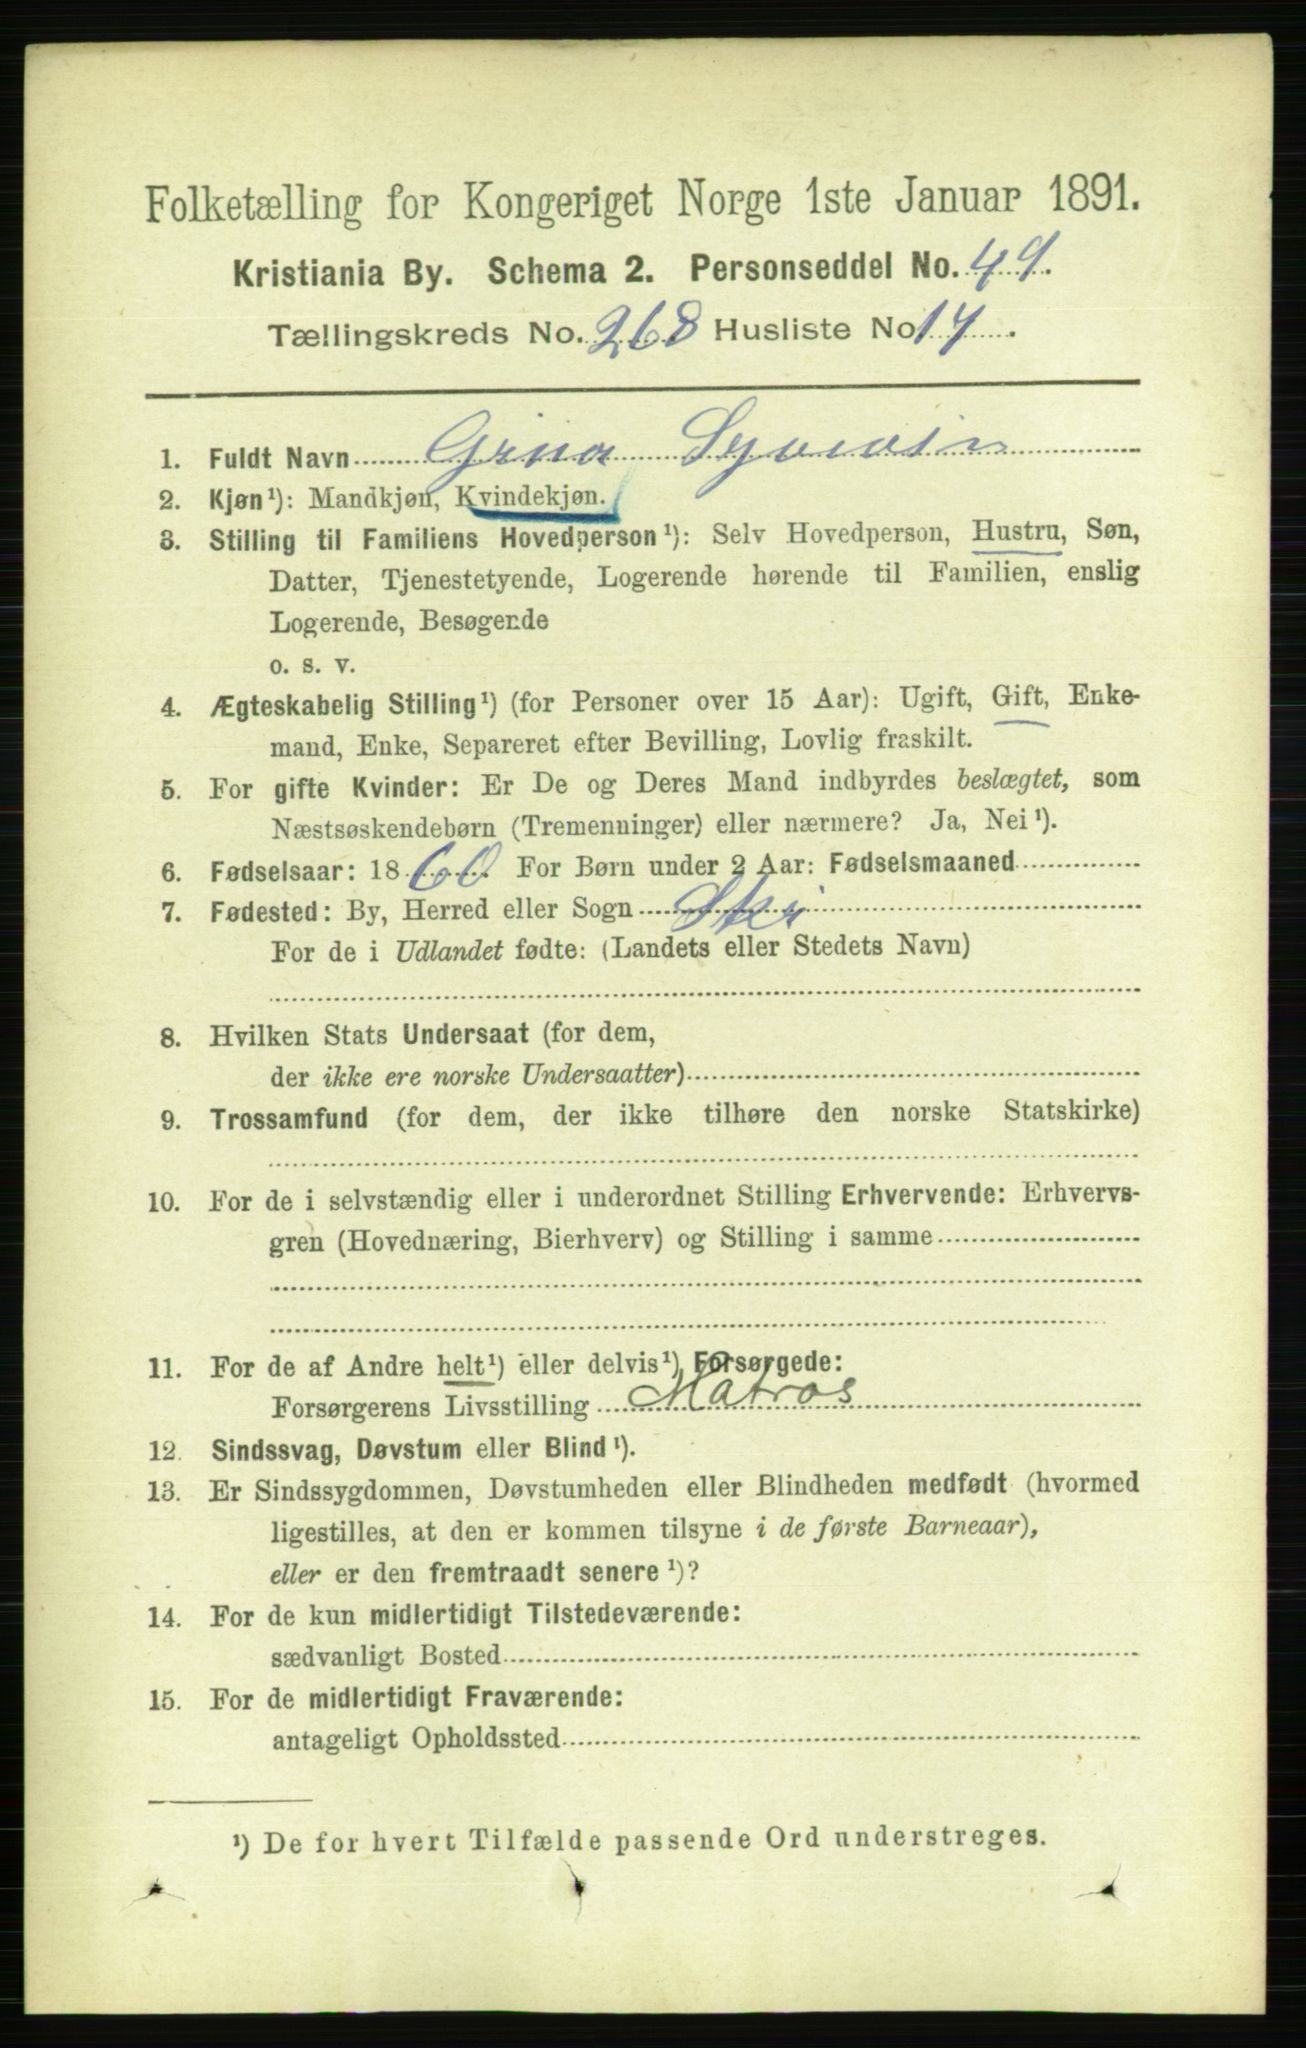 Folketælling for Kongeriget Norge 1ste Januar 1891.
Kristiania By. Schema 2. Personseddel No. 49.
Tællingskreds No. 268 Husliste No 14.
1. Fuldt Navn Grina
2. Kjøn¹): Mandkjøn, Kvindekjøn.
3. Stilling til Familiens Hovedperson¹): Selv Hovedperson, Hustru, Søn,
Datter, Tjenestetyende, Logerende hørende til Familien, enslig
Logerende, Besøgende
o. s. v.
4. Ægteskabelig Stilling¹) (for Personer over 15 Aar): Ugift, Gift, Enke-
mand, Enke, Separeret efter Bevilling, Lovlig fraskilt.
5. For gifte Kvinder: Er De og Deres Mand indbyrdes beslægtet, som
Næstsøskendebørn (Tremenninger) eller nærmere? Ja, Nei¹).
6. Fødselsaar: 1860. For Børn under 2 Aar: Fødselsmaaned
7. Fødested: By, Herred eller Sogn Ski
For de i Udlandet fødte: (Landets eller Stedets Navn)
8. Hvilken Stats Undersaat (for dem,
der ikke ere norske Undersaatter)
9. Trossamfund (for dem, der ikke tilhøre den norske Statskirke)
10. For de i selvstændig eller i underordnet Stilling Erhvervende: Erhvervs-
gren (Hovednæring, Bierhverv) og Stilling i samme
11. For de af Andre helt¹) eller delvis¹) Forsørgede:
Forsørgerens Livsstilling Matros
12. Sindssvag, Døvstum eller Blind¹).
13. Er Sindssygdommen, Døvstumheden eller Blindheden medfødt (hvormed
ligestilles, at den er kommen tilsyne i de første Barneaar),
eller er den fremtraadt senere¹)?
14. For de kun midlertidigt Tilstedeværende:
sædvanligt Bosted
15. For de midlertidigt Fraværende:
antageligt Opholdssted
¹) De for hvert Tilfælde passende Ord understreges.